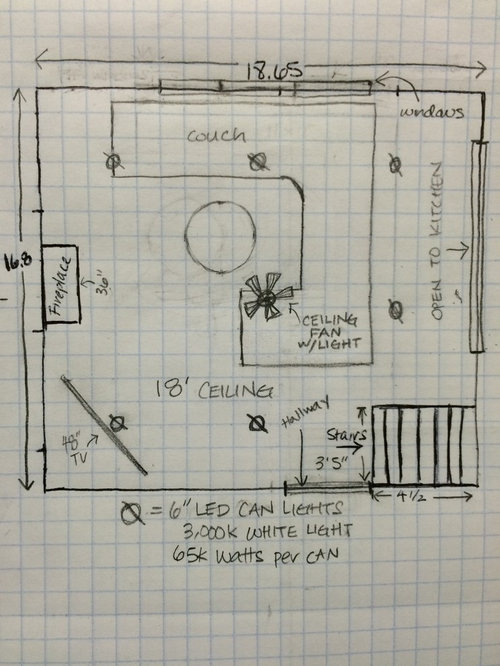 18.65
windows
couch
OPEN TO KITCHEN
16.8
Fireplace
36"
CEILING
FAN
W/LIGHT
18' CEILING
Hallway
48"
TV
Stairs
3'5"
4 1/2
= 6" LED CAN LIGHTS
3,000K WHITE LIGHT
65K Watts per CAN